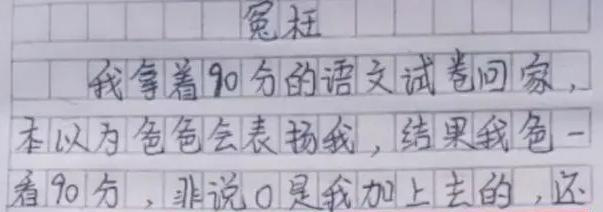 冤枉
我拿着90分的语文试卷回家，
本以为爸爸会表扬我，结果我爸一
看90分，非说0是我加上去的，还